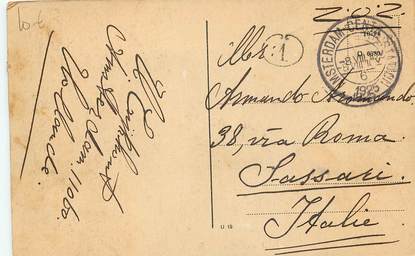 10 €
Z.O.Z.
AMSTERDAM CENTRAAL STATION
1925
1
Mr:
Armando
38, via Roma
Sassari
Italie
Amsterdam.
Hollande.
U 18